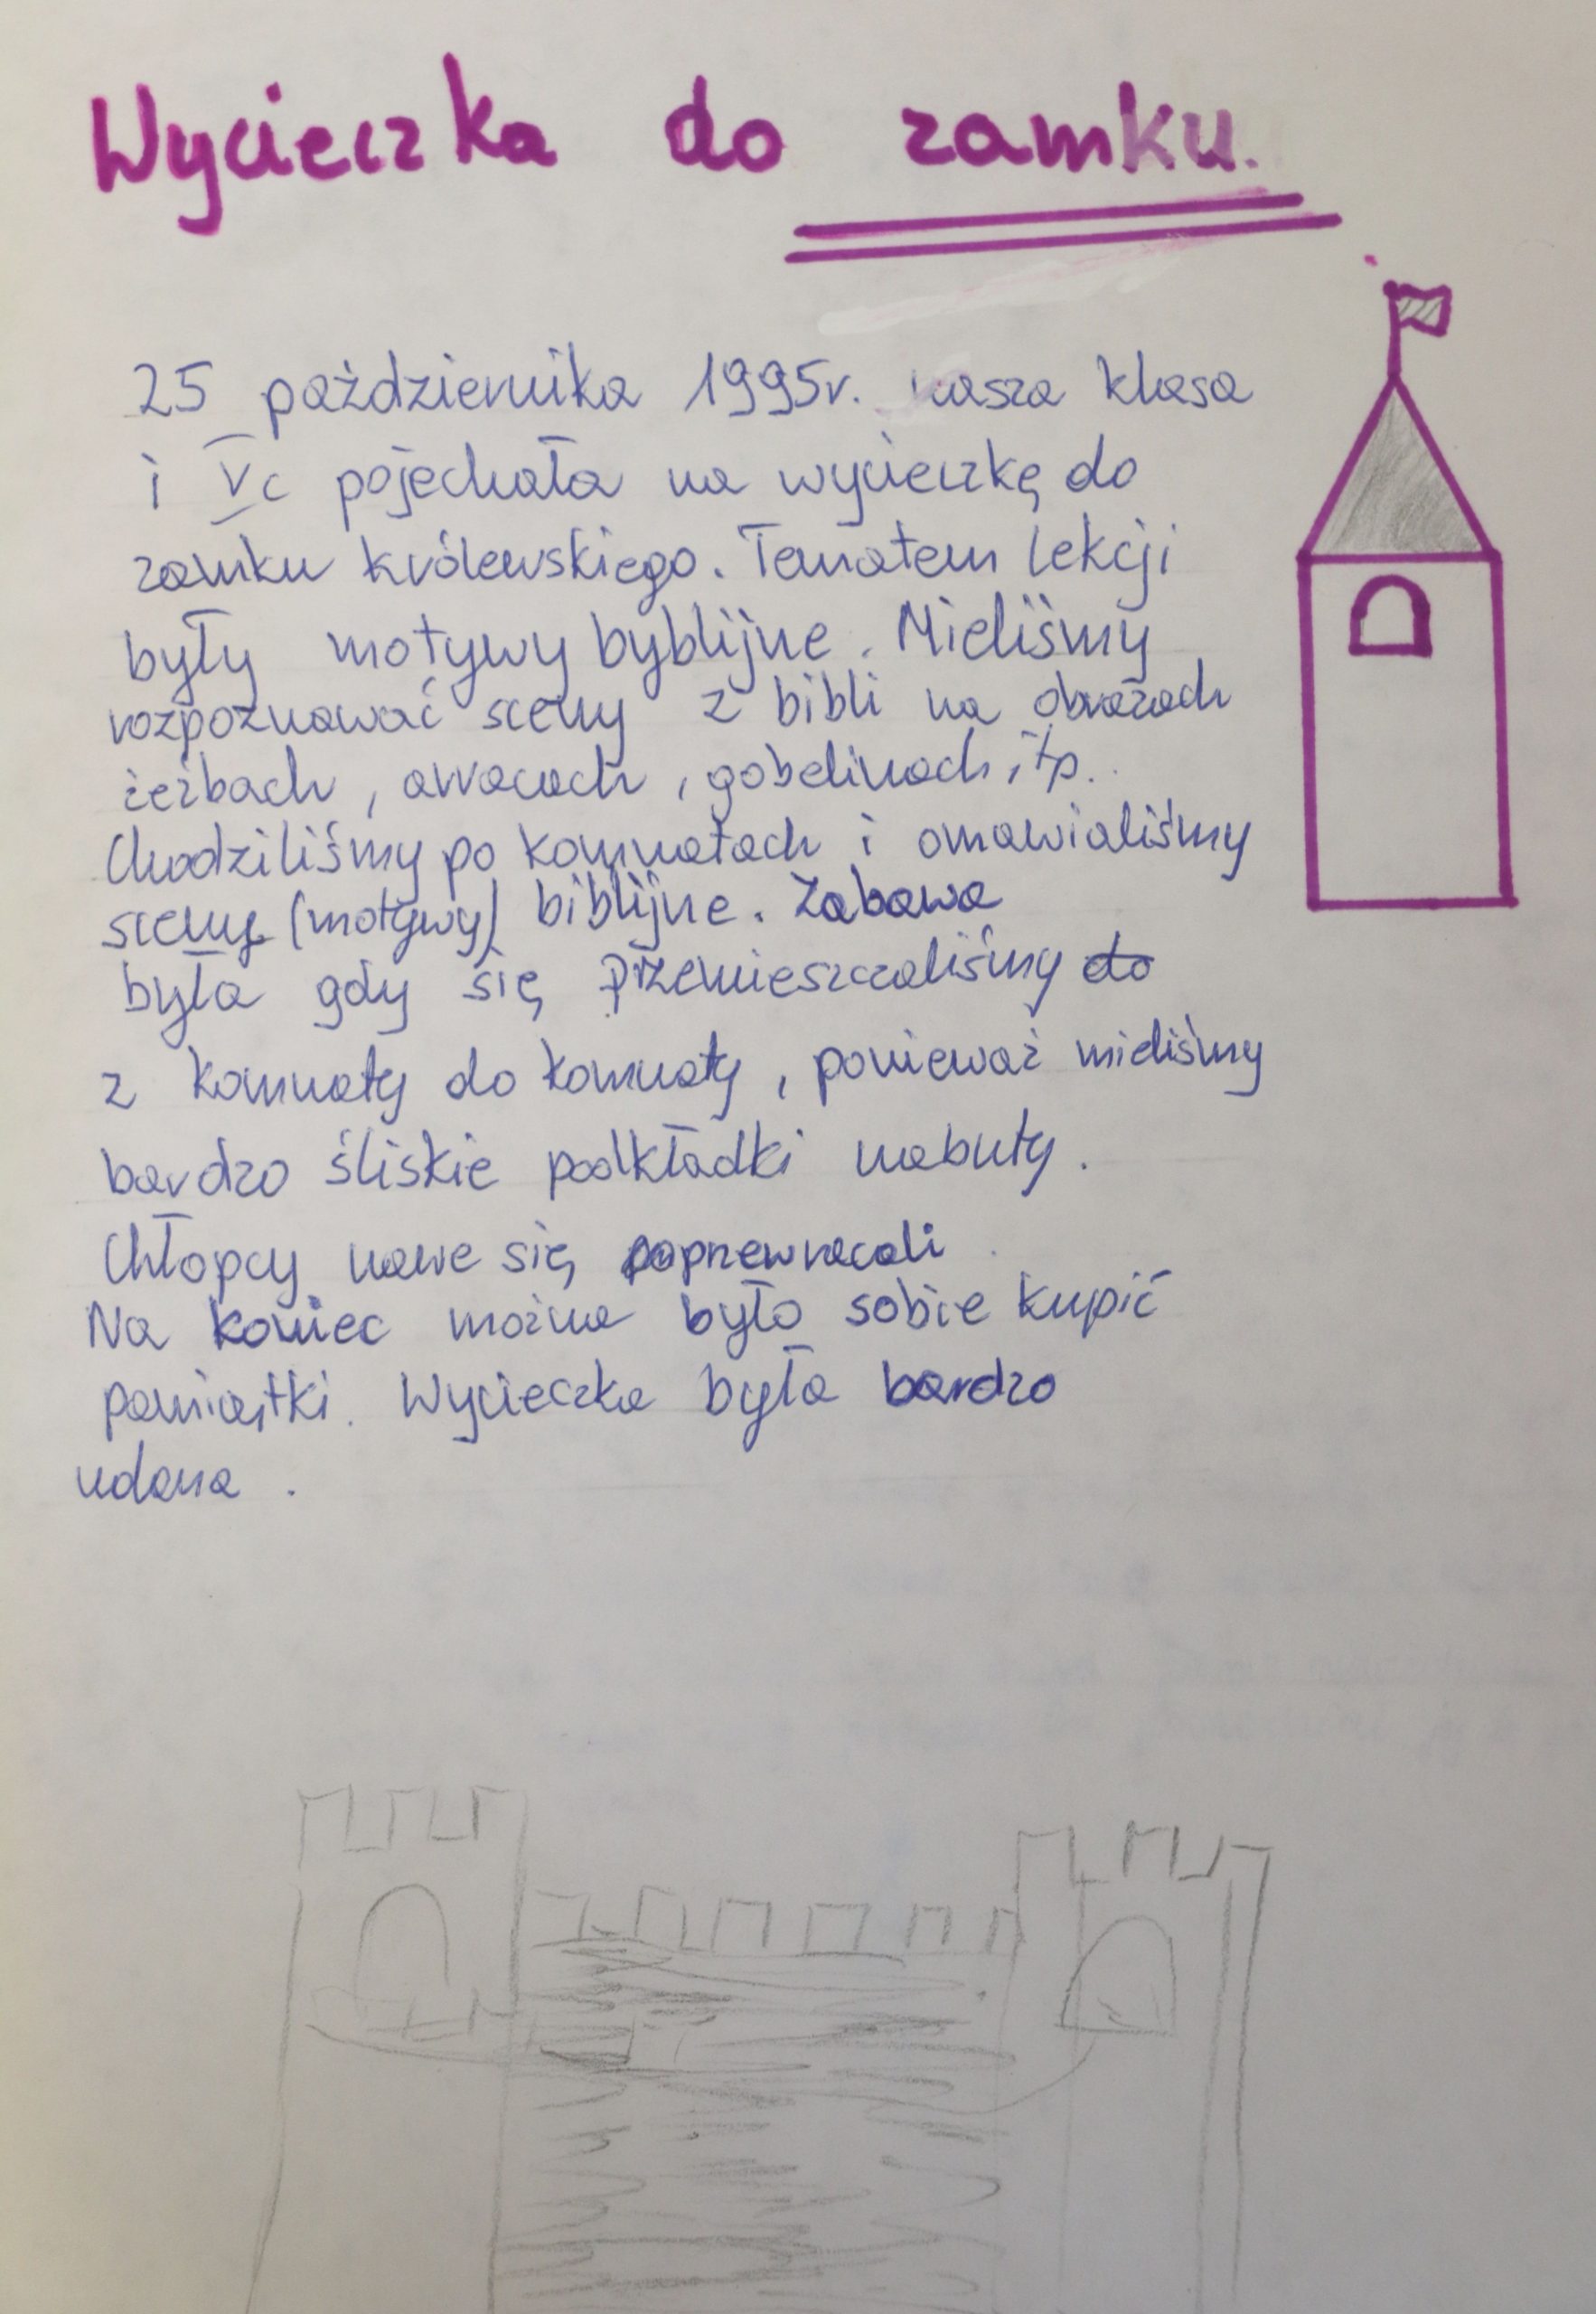 Wycieczka do zamku.
25 październik​a 1995r. nasza klasa
i Vc pojechała na wycieczkę do
zamku królewskiego. Tematem lekcji
były motywy byblijne. Mieliśmy
rozpoznawać sceny z bibli na obrazach
żeźbach, arracach, gobelinach, itp.
Chodziliśmy po komnatach i omawialiśmy
sceny (motywy) biblijne. Zabawa
była gdy się przemieszczaliśmy do
z komnaty do komnaty, ponieważ mieliśmy
bardzo śliskie podkładki nabuty.
Chłopcy nawe się poprzewracali
Na koniec można było sobie kupić
pamiątki. Wycieczka była bardzo
udana.